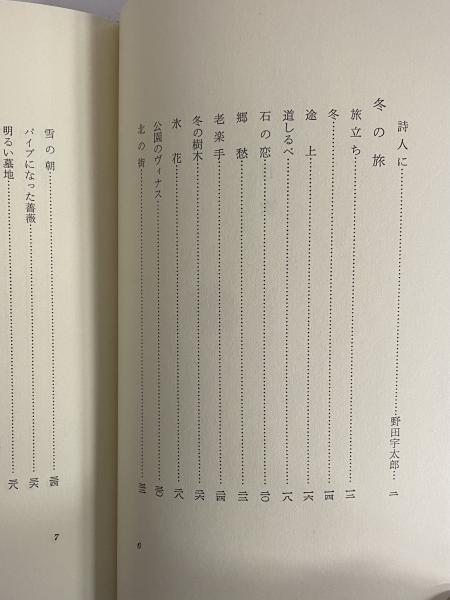 詩人に………野田宇太郎… 二
冬の旅
旅立ち………一二
冬………一四
途上………一六
道しるべ………一八
石の恋………二〇
郷愁………二二
老楽手………二四
冬の樹木………二六
氷花………二八
公園のヴィナス………三〇
北の街………三二
6
雪の朝………三四
パイプになった薔薇………三六
明るい墓地………三八
7